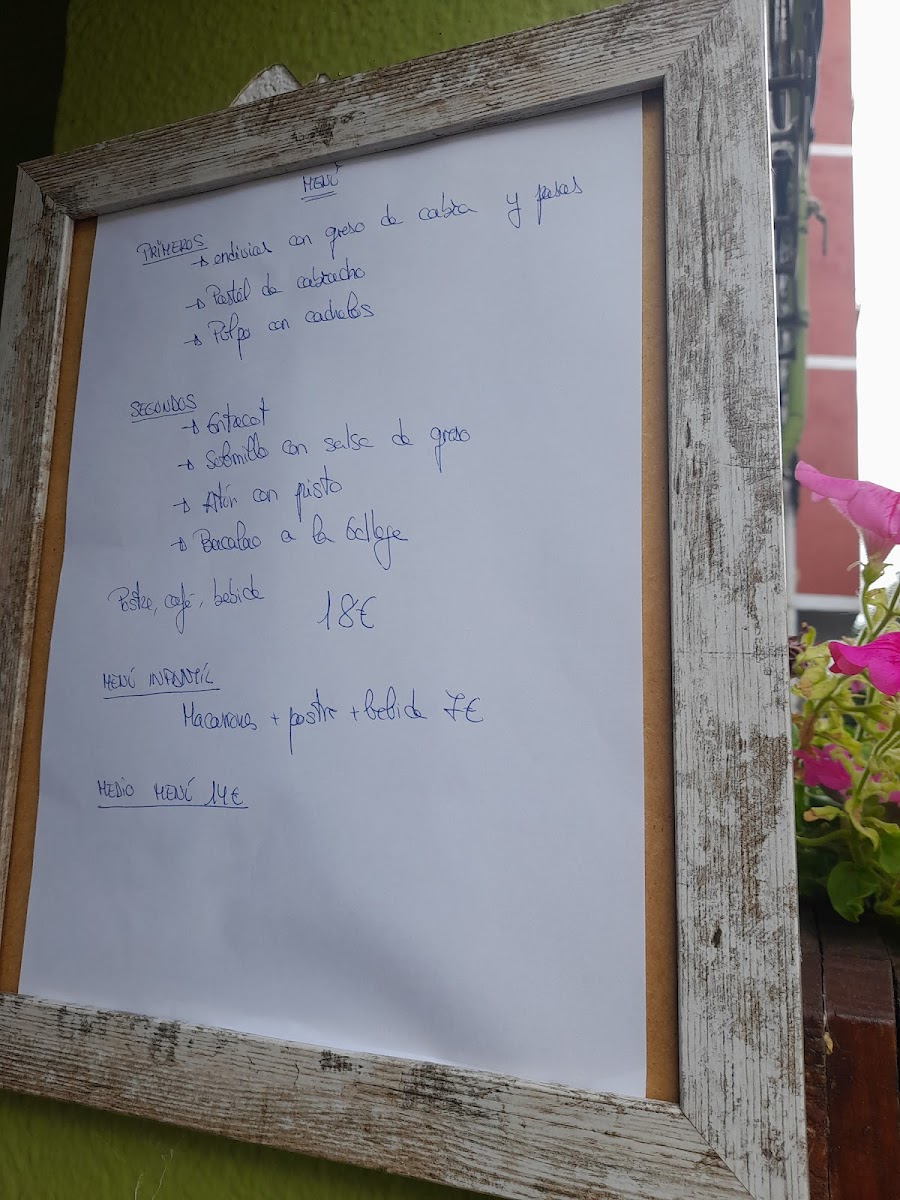 MENÚ
PRIMEROS
→ endivias con queso de cabra y pasas
→ Pastel de cabracho
→ Pulpo con cachelos
SEGUNDOS
→ Entrecot
→ Solomillo con salsa de queso
→ Atún con pisto
→ Bacalao a la
Postre, café, bebida 18€
MENÚ INFANTIL
Macarrones + postre + bebida 7€
MEDIO MENÚ 14€